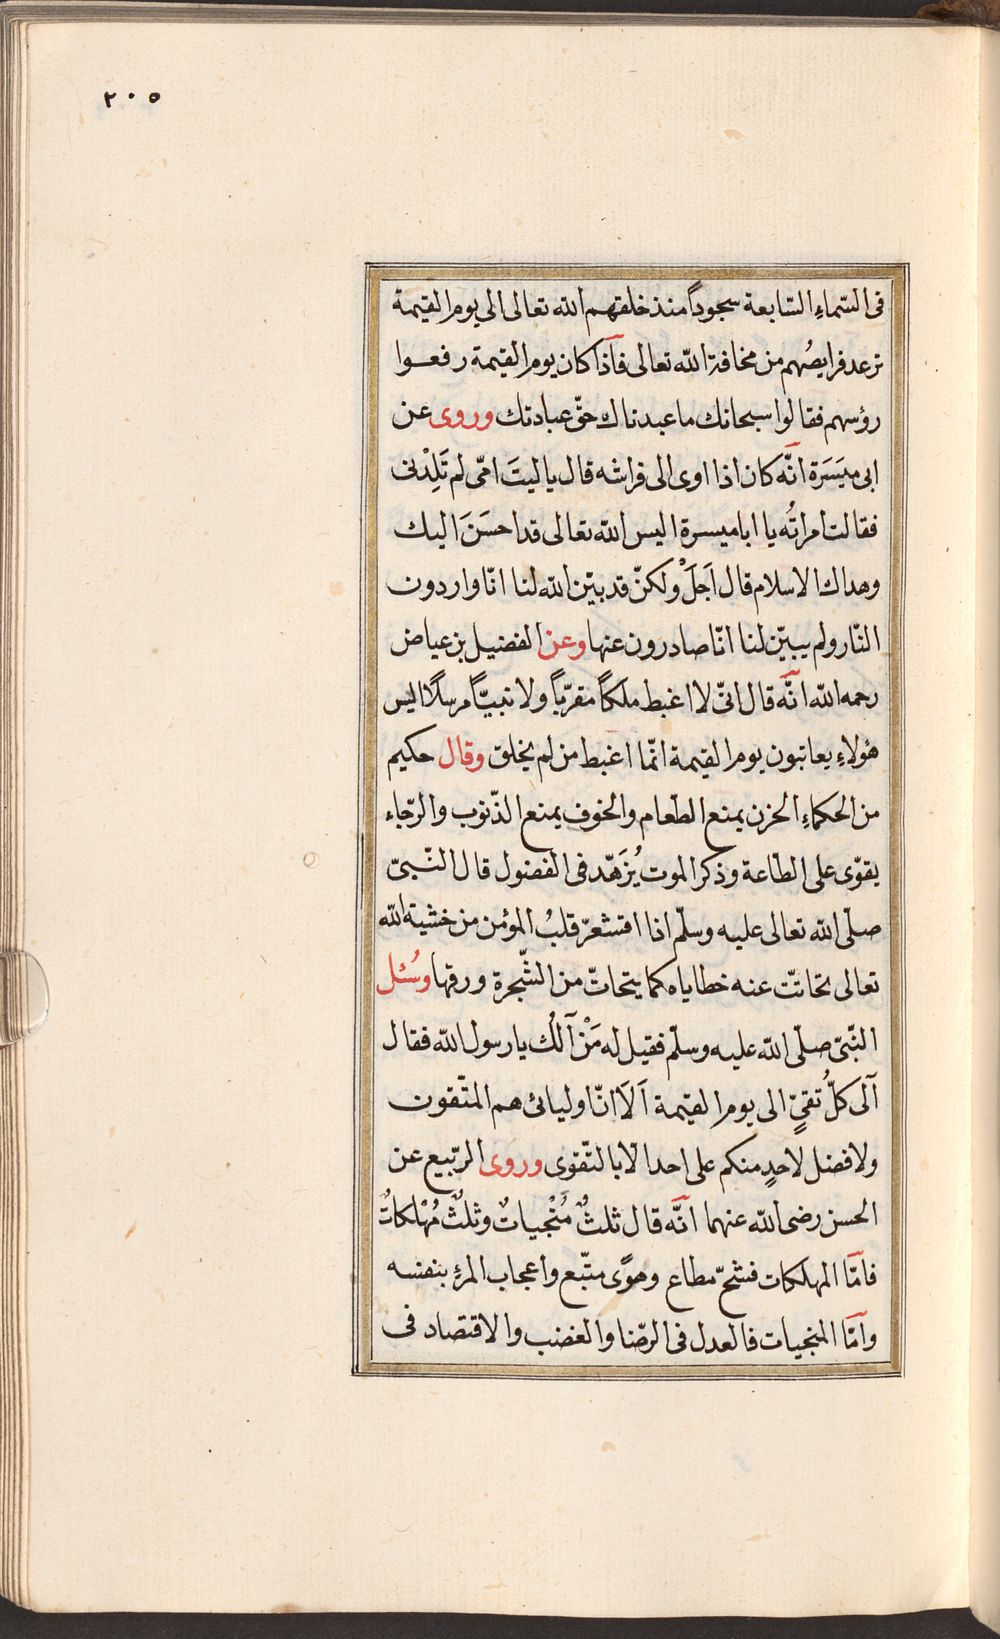 ٢٠٥
فى السّماءِ السّابعة سجوداً منذ خلقهم الله تعالى الى يوم القيمة
ترعد فرايصُهم من مخافة الله تعالى فاذا كان يوم القيمة رفعوا
رؤسهم فقالوا سبحانك ما عبدناك حقّ عبادتك وروى عن
ابى ميَسَرَة انّه كان اذا اوى الى فراشه قال يا ليتَ امّى لم تَلِدْنى
فقالت امراتُه يا ابا ميسرة اليس الله تعالى قد احسَنَ اليك
وهداك الاسلام قال اَجَلْ ولكنّ قد بيّن الله لنا انّا واردون
النّار ولم يبيّن لنا انّا صادرون عنها وعن الفضيل بن عياض
رحمه الله انّه قال انّى لا اغبط ملكاً مقرّباً ولا نبيّاً مرسلاً اليس
هؤلاءِ يعاتبون يوم القيمة انّما اغبط من لم يخلق وقال حكيم
من الحكماءِ الحزن يمنع الطّعام والخوف يمنع الذّنوب والرّجاء
يقوّى على الطّاعة وذكر الموت يُزَهّد فى الفضول قال النّبىّ
صلّى الله تعالى عليه وسلّم اذا اقشعرّ قلبُ المؤمن من خشية الله
تعالى تحاتّت عنه خطاياه كما يتحاتّ من الشّجرة ورقها وسُئل
النّبىّ صلّى الله عليه وسلّم فقيل له مَنْ آلُك يا رسول الله فقال
آلى كلّ تُقيٍّ الى يوم القيمة اَلَا انّ اوليائى هم المتّقون
ولا فضل لاحدٍ منكم على احد الّا بالتّقوى وروى الرّبيع عن
الحسن رضى الله عنهما انّه قال ثلثٌ مُنْجياتٌ وثلثٌ مُهْلكاتٌ
فامّا المهلكات فشحّ مطاع وهوًى متّبع واعجاب المرءِ بنفسه
وامّا المنجيات فالعدل فى الرّضا والغضب والاقتصاد فى